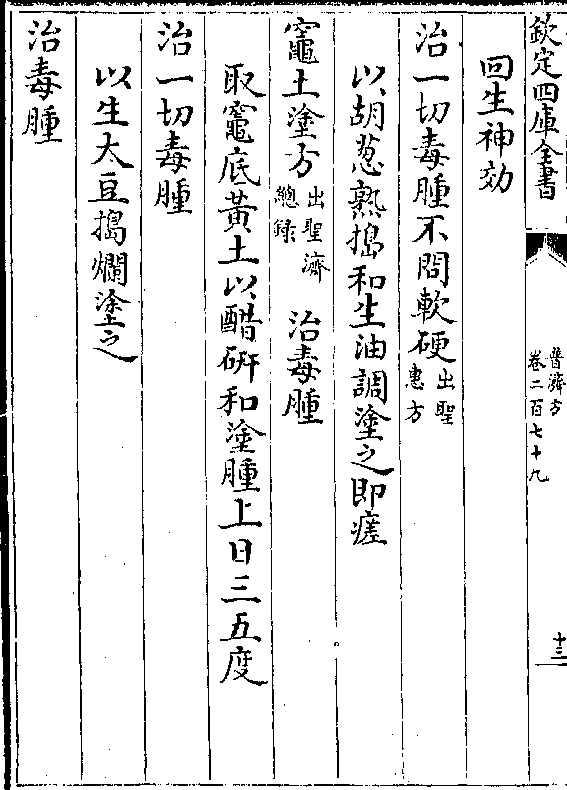 欽定四庫全書
普濟方
卷二百七十九
十三
回生神効
治一切毒腫不問軟硬出聖惠方
以胡葱熟搗和生油調塗之即瘥
竈土塗方出聖濟總錄 治毒腫
取竈底黃土以醋硏和塗腫上日三五度
治一切毒腫
以生大豆搗爛塗之
治毒腫